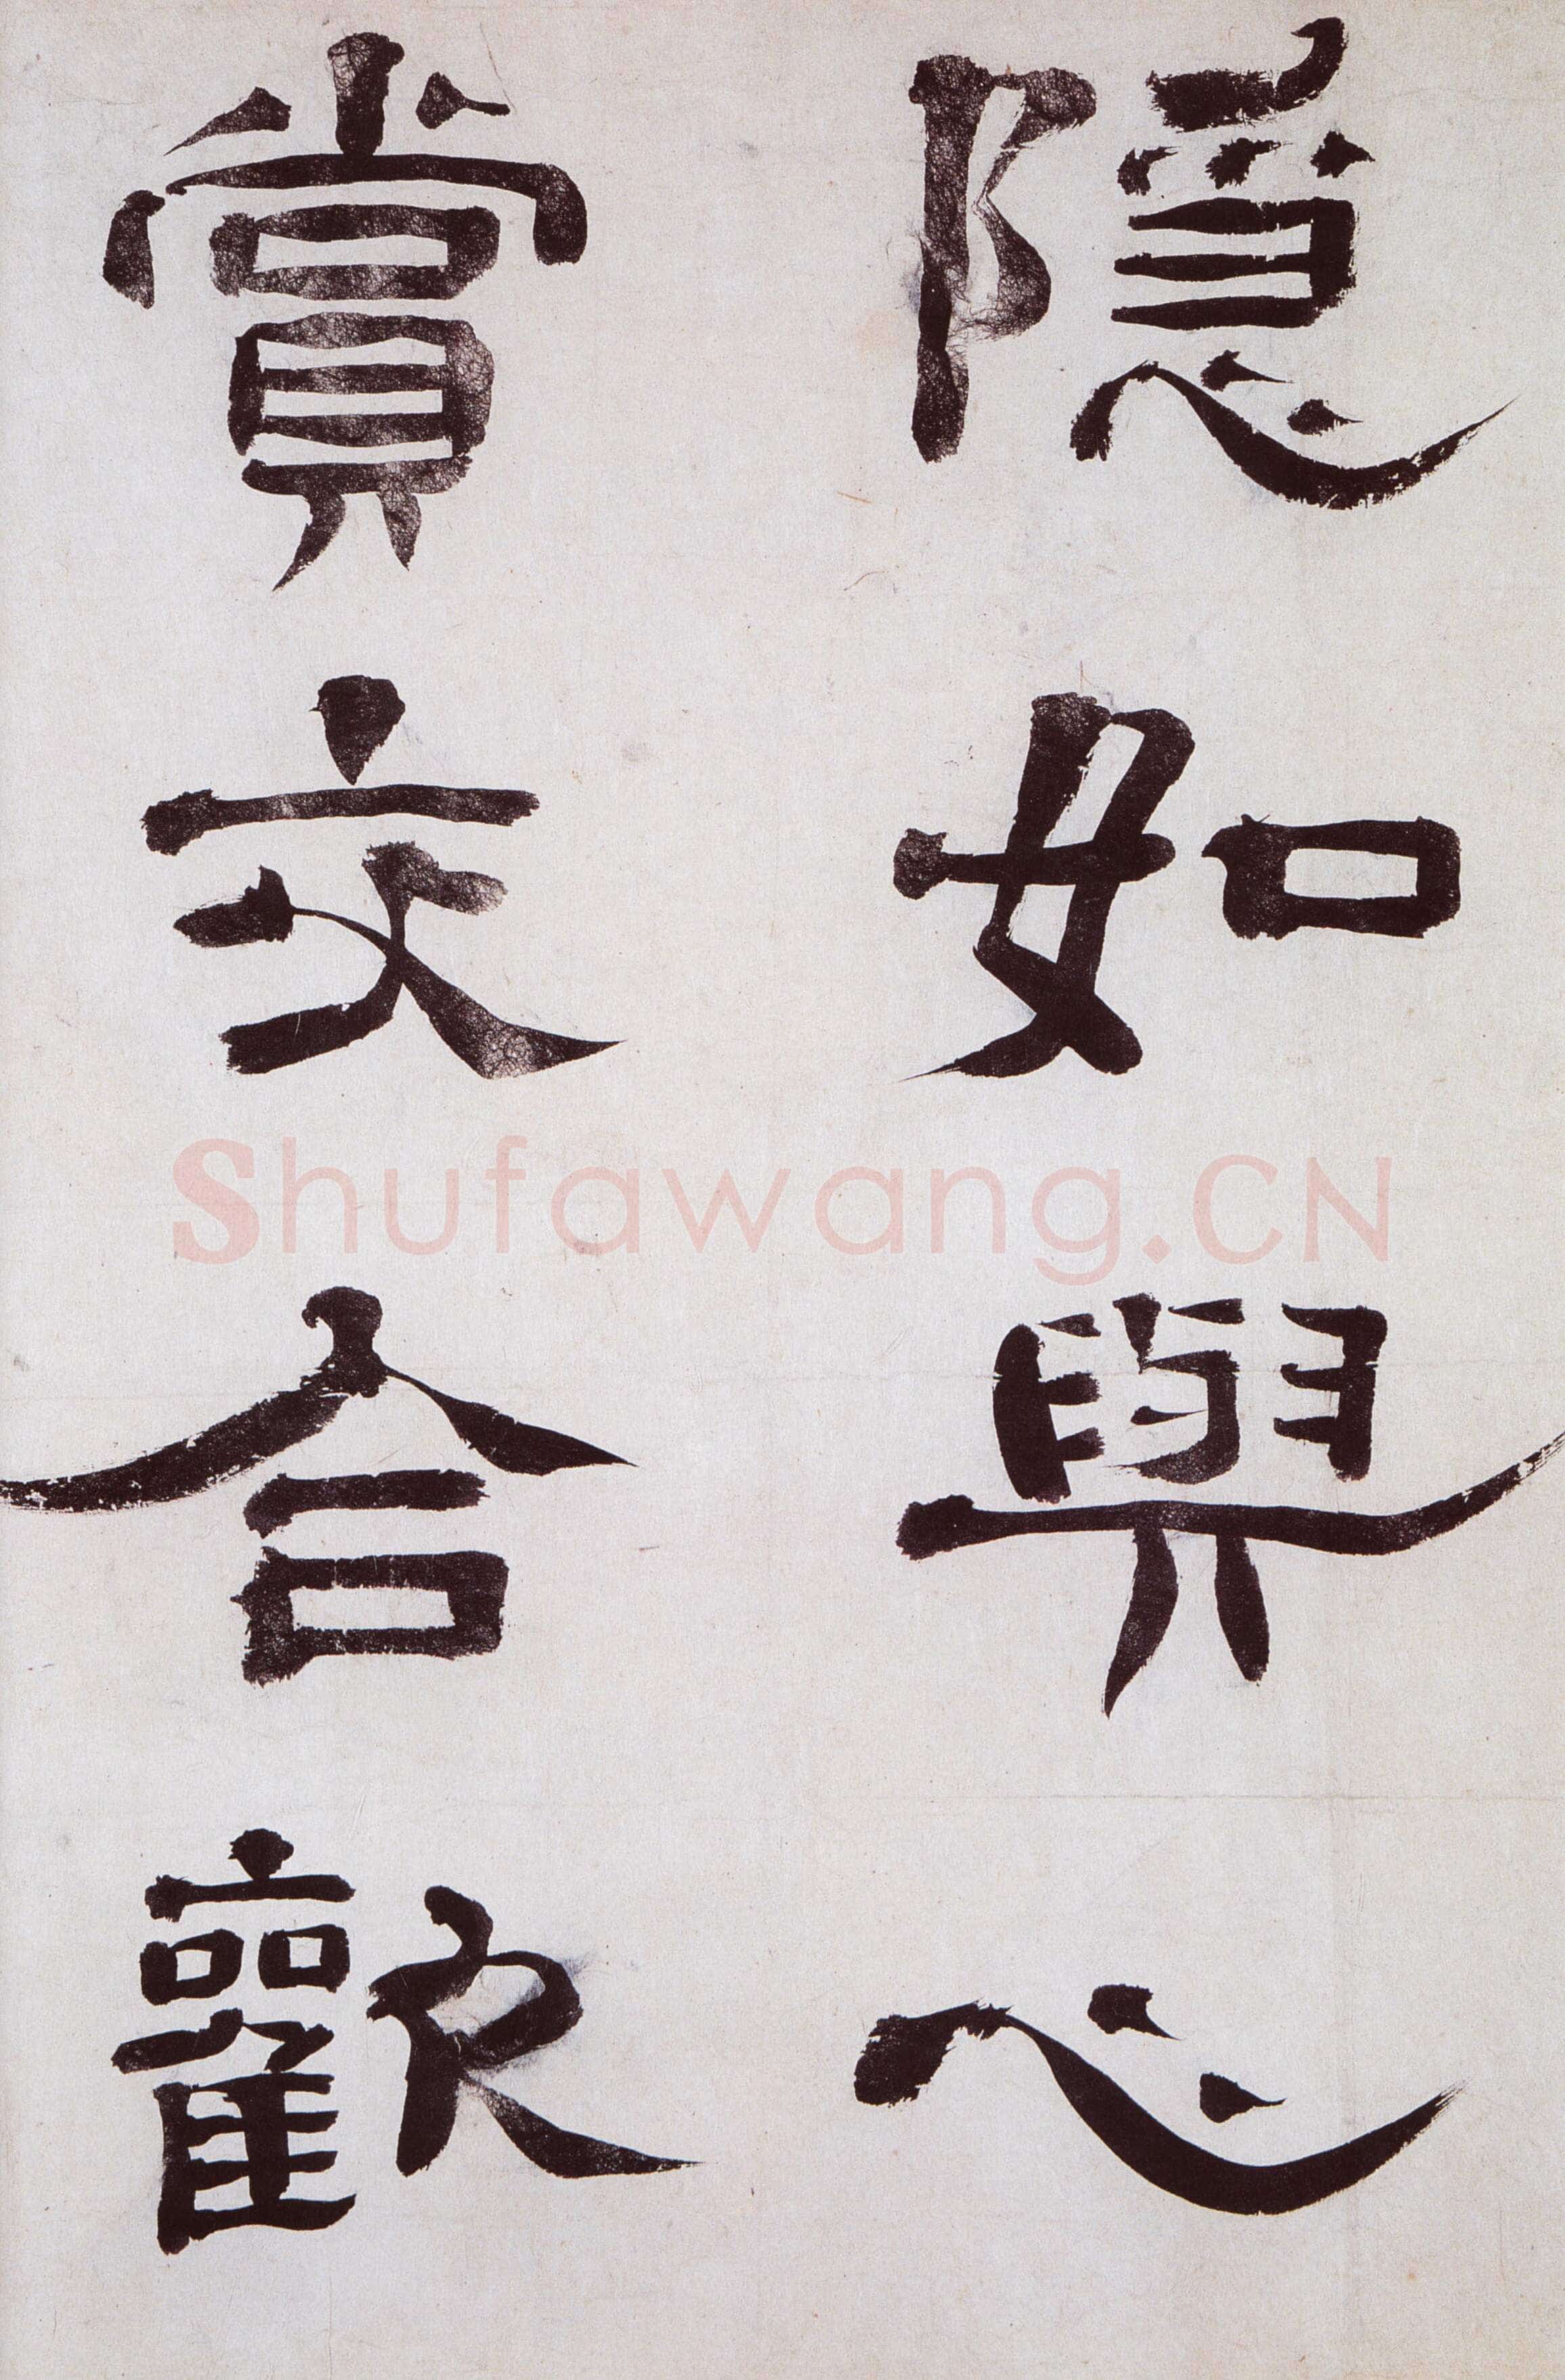 隱如與心
賞交合歡
Shufawang.CN